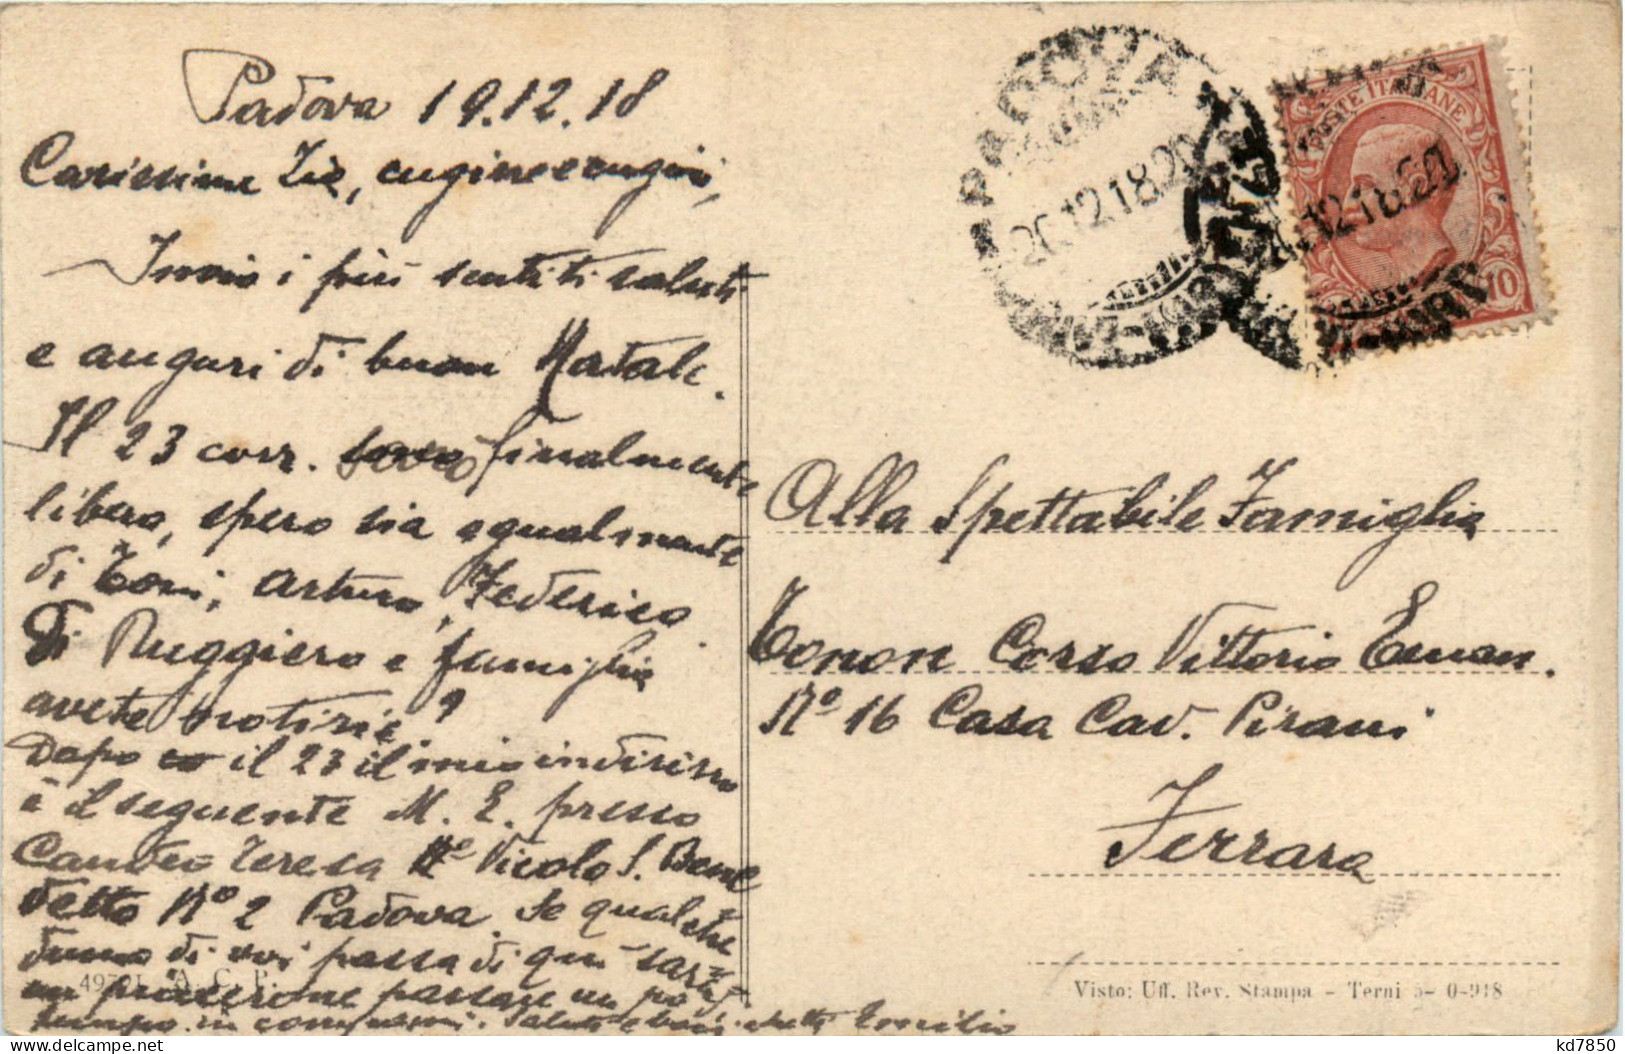 Padova 19.12.18
Carissime Zie, cugine e cugini,
Invio i più sentiti saluti
e auguri di buon Natale.
Il 23 corr. sarò finalmente
libero, spero sia egualmente
di Toni, Arturo, Federico.
Di Ruggiero e famiglia
avete notizie?
Dopo il 23 il mio indirizzo
è il seguente M. E. presso
Teresa Vicolo S. Bene
detto No 2 Padova. Se qualche
duno di voi passa di qui sarà
un piacerone passare un po'
tempo in compagnia. Saluti e baci Emilio
PADOVA
20.12.18.20
POSTE ITALIANE
12.18.20
10
Alla Spettabile Famiglia
Tonon Corso Vittorio Eman.
No 16 Casa Cav. Pirani
Ferrara
A. C. P.
Visto: Uff. Rev. Stampa - Terni 5- 0-918
kd7850